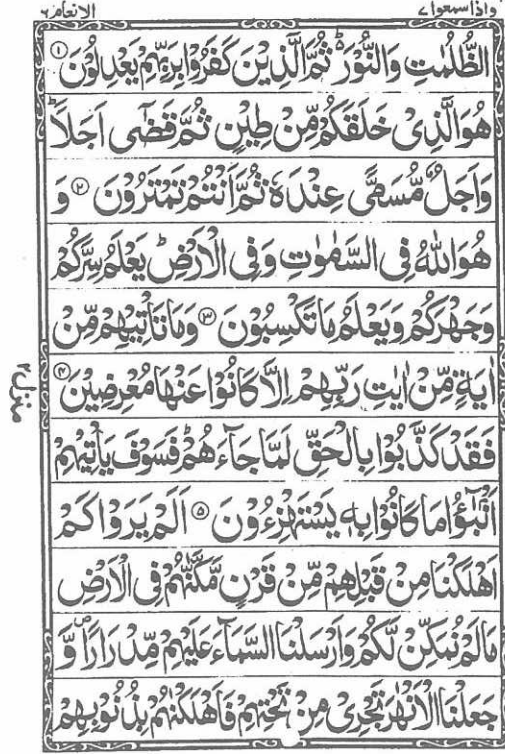 واذاسمعوا٧ الانعام٦
الظُّلُمٰتِ وَالنُّوْرَ ؕ ثُمَّ الَّذِيْنَ كَفَرُوْا بِرَبِّهِمْ يَعْدِلُوْنَ ۝۱
هُوَ الَّذِىْ خَلَقَكُمْ مِّنْ طِيْنٍ ثُمَّ قَضٰٓى اَجَلًا ؕ
وَاَجَلٌ مُّسَمًّى عِنْدَهٗ ثُمَّ اَنْتُمْ تَمْتَرُوْنَ ۝۲ وَ
هُوَ اللّٰهُ فِى السَّمٰوٰتِ وَفِى الْاَرْضِ ؕ يَعْلَمُ سِرَّكُمْ
وَجَهْرَكُمْ وَيَعْلَمُ مَا تَكْسِبُوْنَ ۝۳ وَمَا تَاْتِيْهِمْ مِّنْ
اٰيَةٍ مِّنْ اٰيٰتِ رَبِّهِمْ اِلَّا كَانُوْا عَنْهَا مُعْرِضِيْنَ ۝۴
فَقَدْ كَذَّبُوْا بِالْحَقِّ لَمَّا جَآءَهُمْ ؕ فَسَوْفَ يَاْتِيْهِمْ
اَنْۢبٰٓؤُا مَا كَانُوْا بِهٖ يَسْتَهْزِءُوْنَ ۝۵ اَلَمْ يَرَوْا كَمْ
اَهْلَكْنَا مِنْ قَبْلِهِمْ مِّنْ قَرْنٍ مَّكَّنّٰهُمْ فِى الْاَرْضِ
مَا لَمْ نُمَكِّنْ لَّكُمْ وَاَرْسَلْنَا السَّمَآءَ عَلَيْهِمْ مِّدْرَارًا ۪ وَّ
جَعَلْنَا الْاَنْهٰرَ تَجْرِىْ مِنْ تَحْتِهِمْ فَاَهْلَكْنٰهُمْ بِذُنُوْبِهِمْ
منزل٢